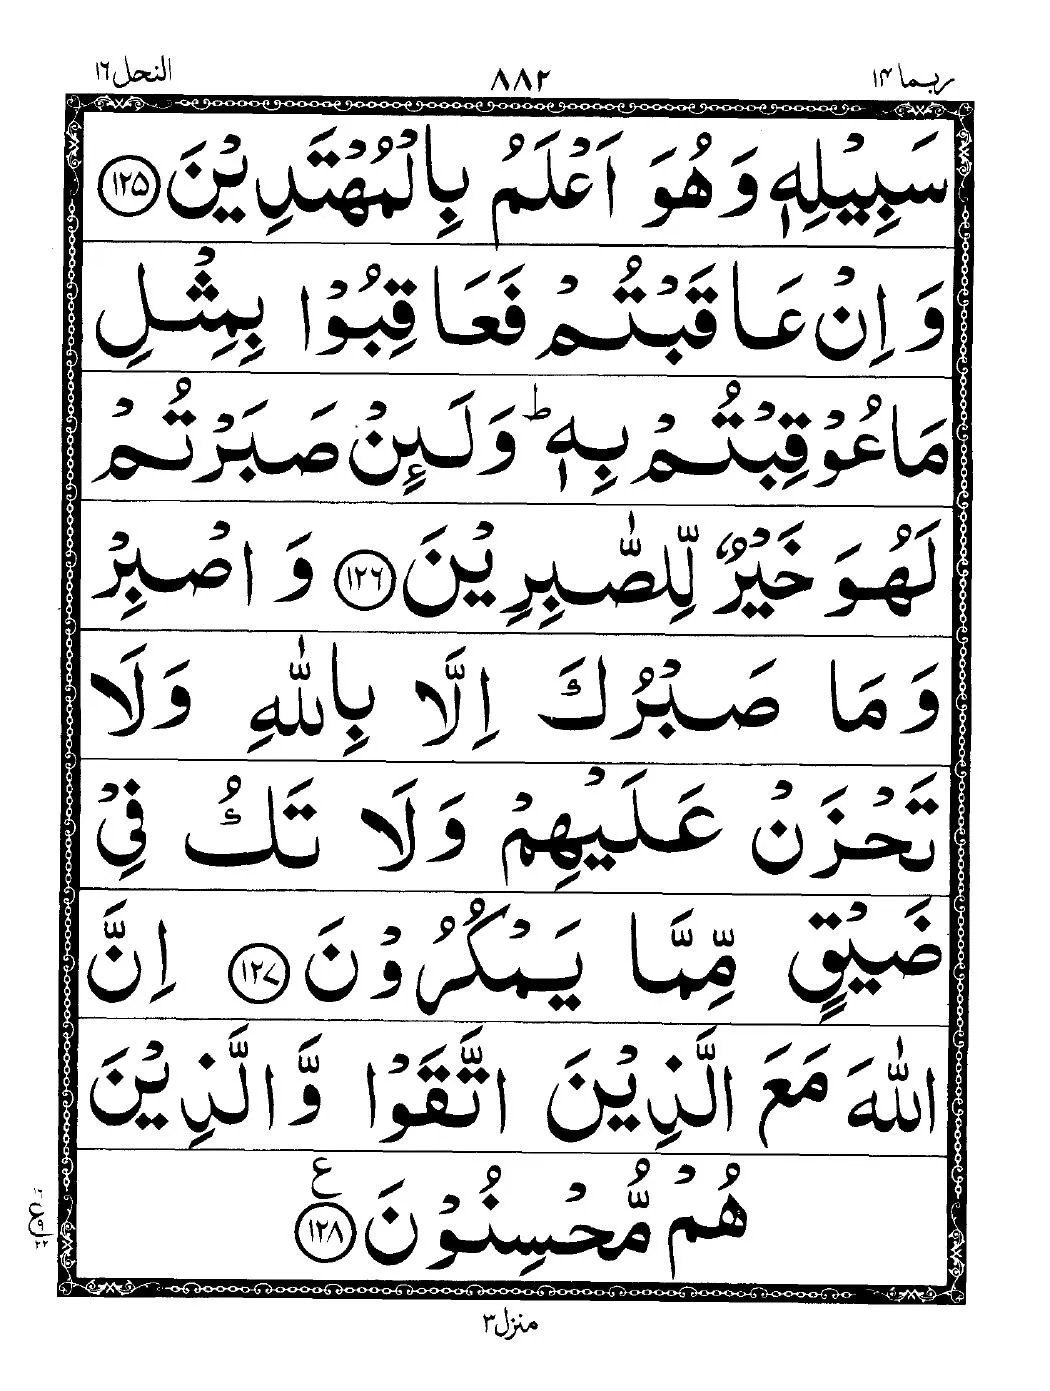 ربما ۱۴
۸۸۲
النحل ۱۶
سَبِيْلِهٖ وَ هُوَ اَعْلَمُ بِالْمُهْتَدِيْنَ ۝۱۲۵
وَ اِنْ عَاقَبْتُمْ فَعَاقِبُوْا بِمِثْلِ
مَا عُوْقِبْتُمْ بِهٖ ؕ وَ لَىِٕنْ صَبَرْتُمْ
لَهُوَ خَيْرٌ لِّلصّٰبِرِيْنَ ۝۱۲۶ وَ اصْبِرْ
وَ مَا صَبْرُكَ اِلَّا بِاللّٰهِ وَ لَا
تَحْزَنْ عَلَيْهِمْ وَ لَا تَكُ فِيْ
ضَيْقٍ مِّمَّا يَمْكُرُوْنَ ۝۱۲۷ اِنَّ
اللّٰهَ مَعَ الَّذِيْنَ اتَّقَوْا وَّ الَّذِيْنَ
هُمْ مُّحْسِنُوْنَ ۝۱۲۸ ع
منزل ۳